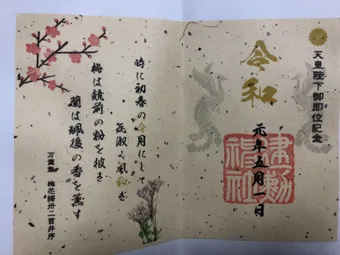 天皇陛下御即位記念
令和
元年五月一日
建勲
神社
時に初春の令月にし
氣淑く風和ぎ
梅は鏡前の粉を披き
蘭は珮後の香を薫す
万葉集 梅花謌卅二首并序